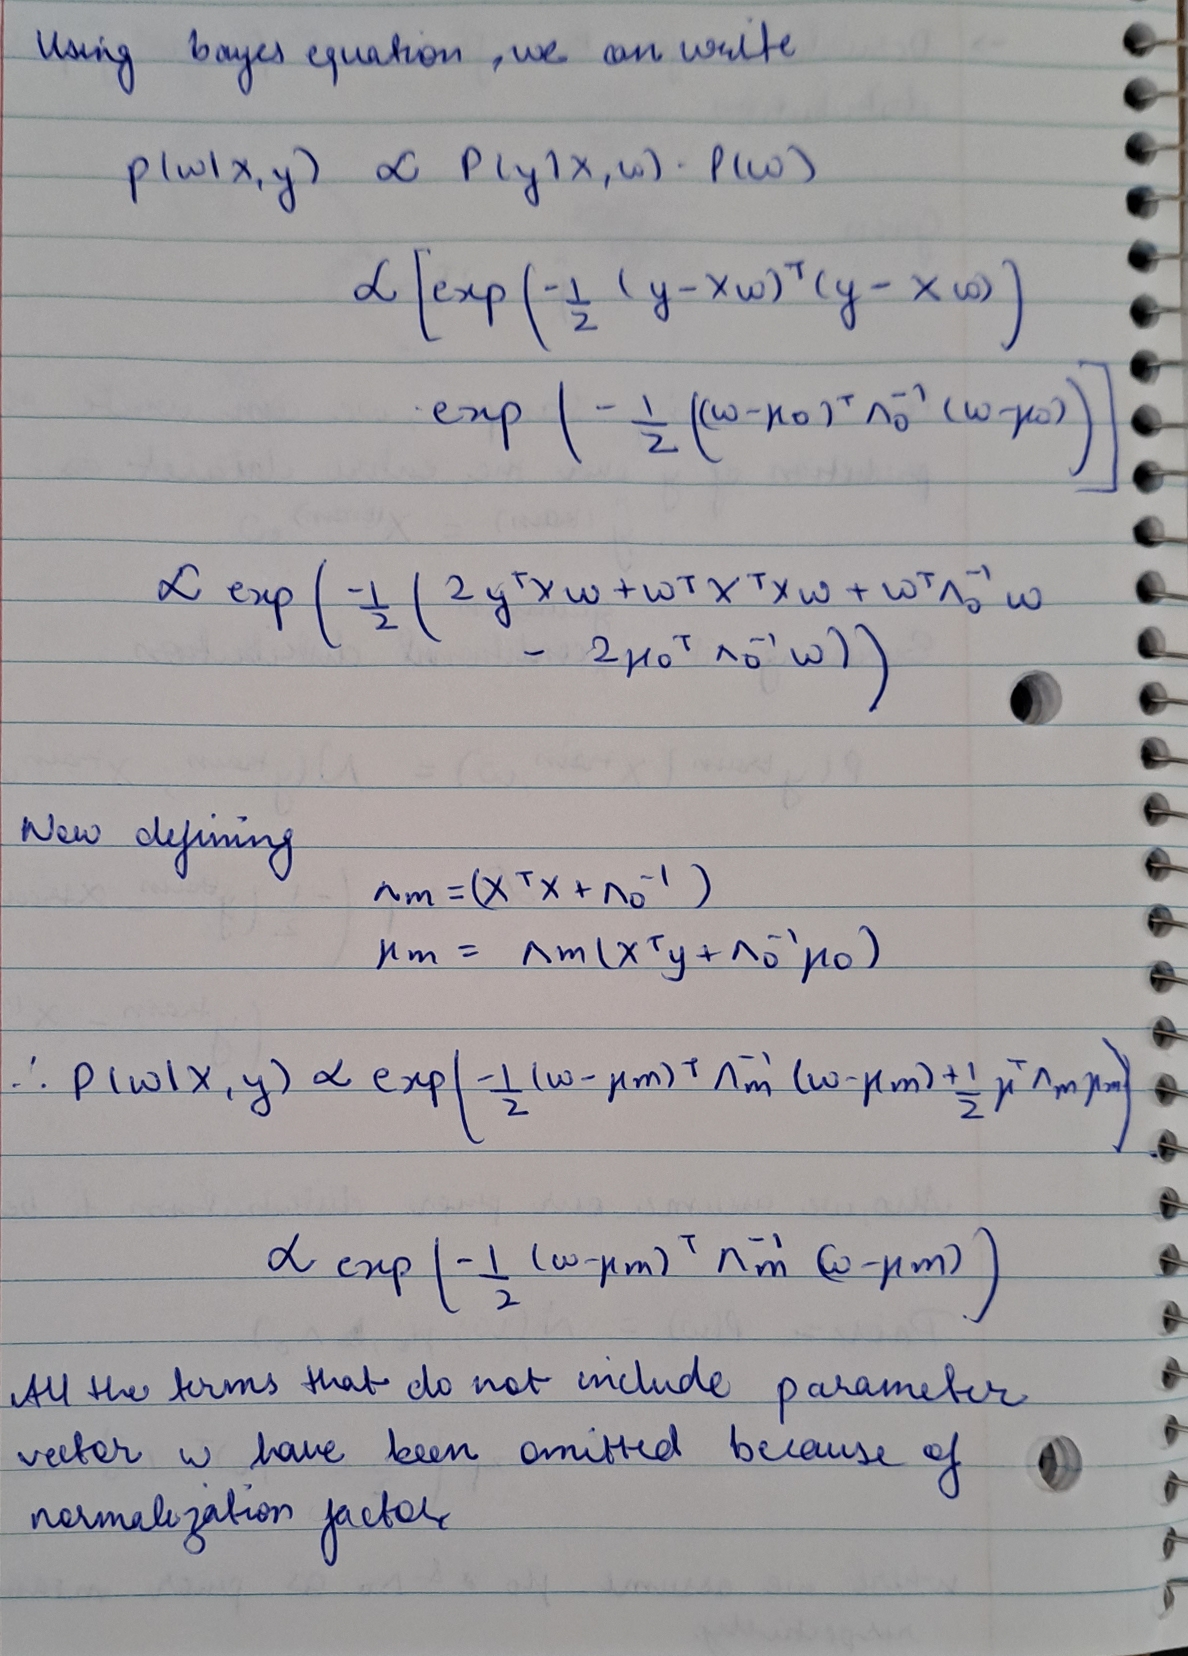 Using bayes equation, we can write
p(w|x,y) ∝ P(y|x,w) · P(w)
∝ [exp(-1/2 (y-Xw)ᵀ(y-Xw))
· exp(-1/2 ((w-μ₀)ᵀ Λ₀⁻¹ (w-μ₀))]
∝ exp(-1/2 (2yᵀXw + wᵀXᵀXw + wᵀΛ₀⁻¹w
- 2μ₀ᵀ Λ₀⁻¹ w))
Now defining
Λm = (XᵀX + Λ₀⁻¹)
μm = Λm(Xᵀy + Λ₀⁻¹μ₀)
∴ P(w|X,y) ∝ exp(-1/2 (w-μm)ᵀ Λm⁻¹ (w-μm) + 1/2 μᵀ Λm μm)
∝ exp(-1/2 (w-μm)ᵀ Λm⁻¹ (w-μm))
All the terms that do not include parameter
vector w have been omitted because of
normalization factor